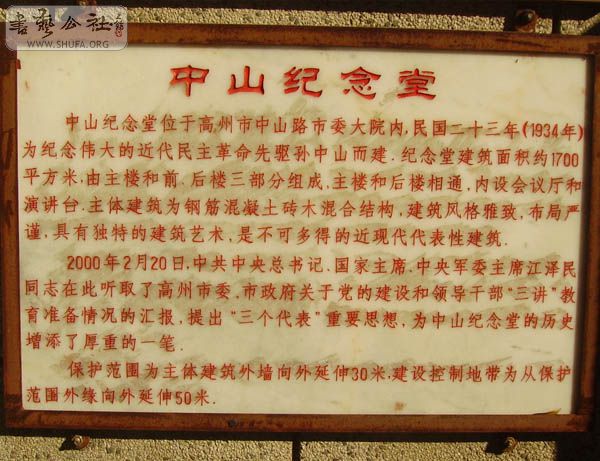 書藝公社
WWW.SHUFA.ORG
中山纪念堂
中山纪念堂位于高州市中山路市委大院内,民国二十三年(1934年)
为纪念伟大的近代民主革命先驱孙中山而建.纪念堂建筑面积约1700
平方米,由主楼和前、后楼三部分组成,主楼和后楼相通,内设会议厅和
演讲台.主体建筑为钢筋混凝土砖木混合结构,建筑风格雅致,布局严
谨,具有独特的建筑艺术,是不可多得的近现代代表性建筑.
2000年2月20日,中共中央总书记、国家主席、中央军委主席江泽民
同志在此听取了高州市委、市政府关于党的建设和领导干部“三讲”教
育准备情况的汇报,提出“三个代表”重要思想,为中山纪念堂的历史
增添了厚重的一笔.
保护范围为主体建筑外墙向外延伸30米,建设控制地带为从保护
范围外缘向外延伸50米.